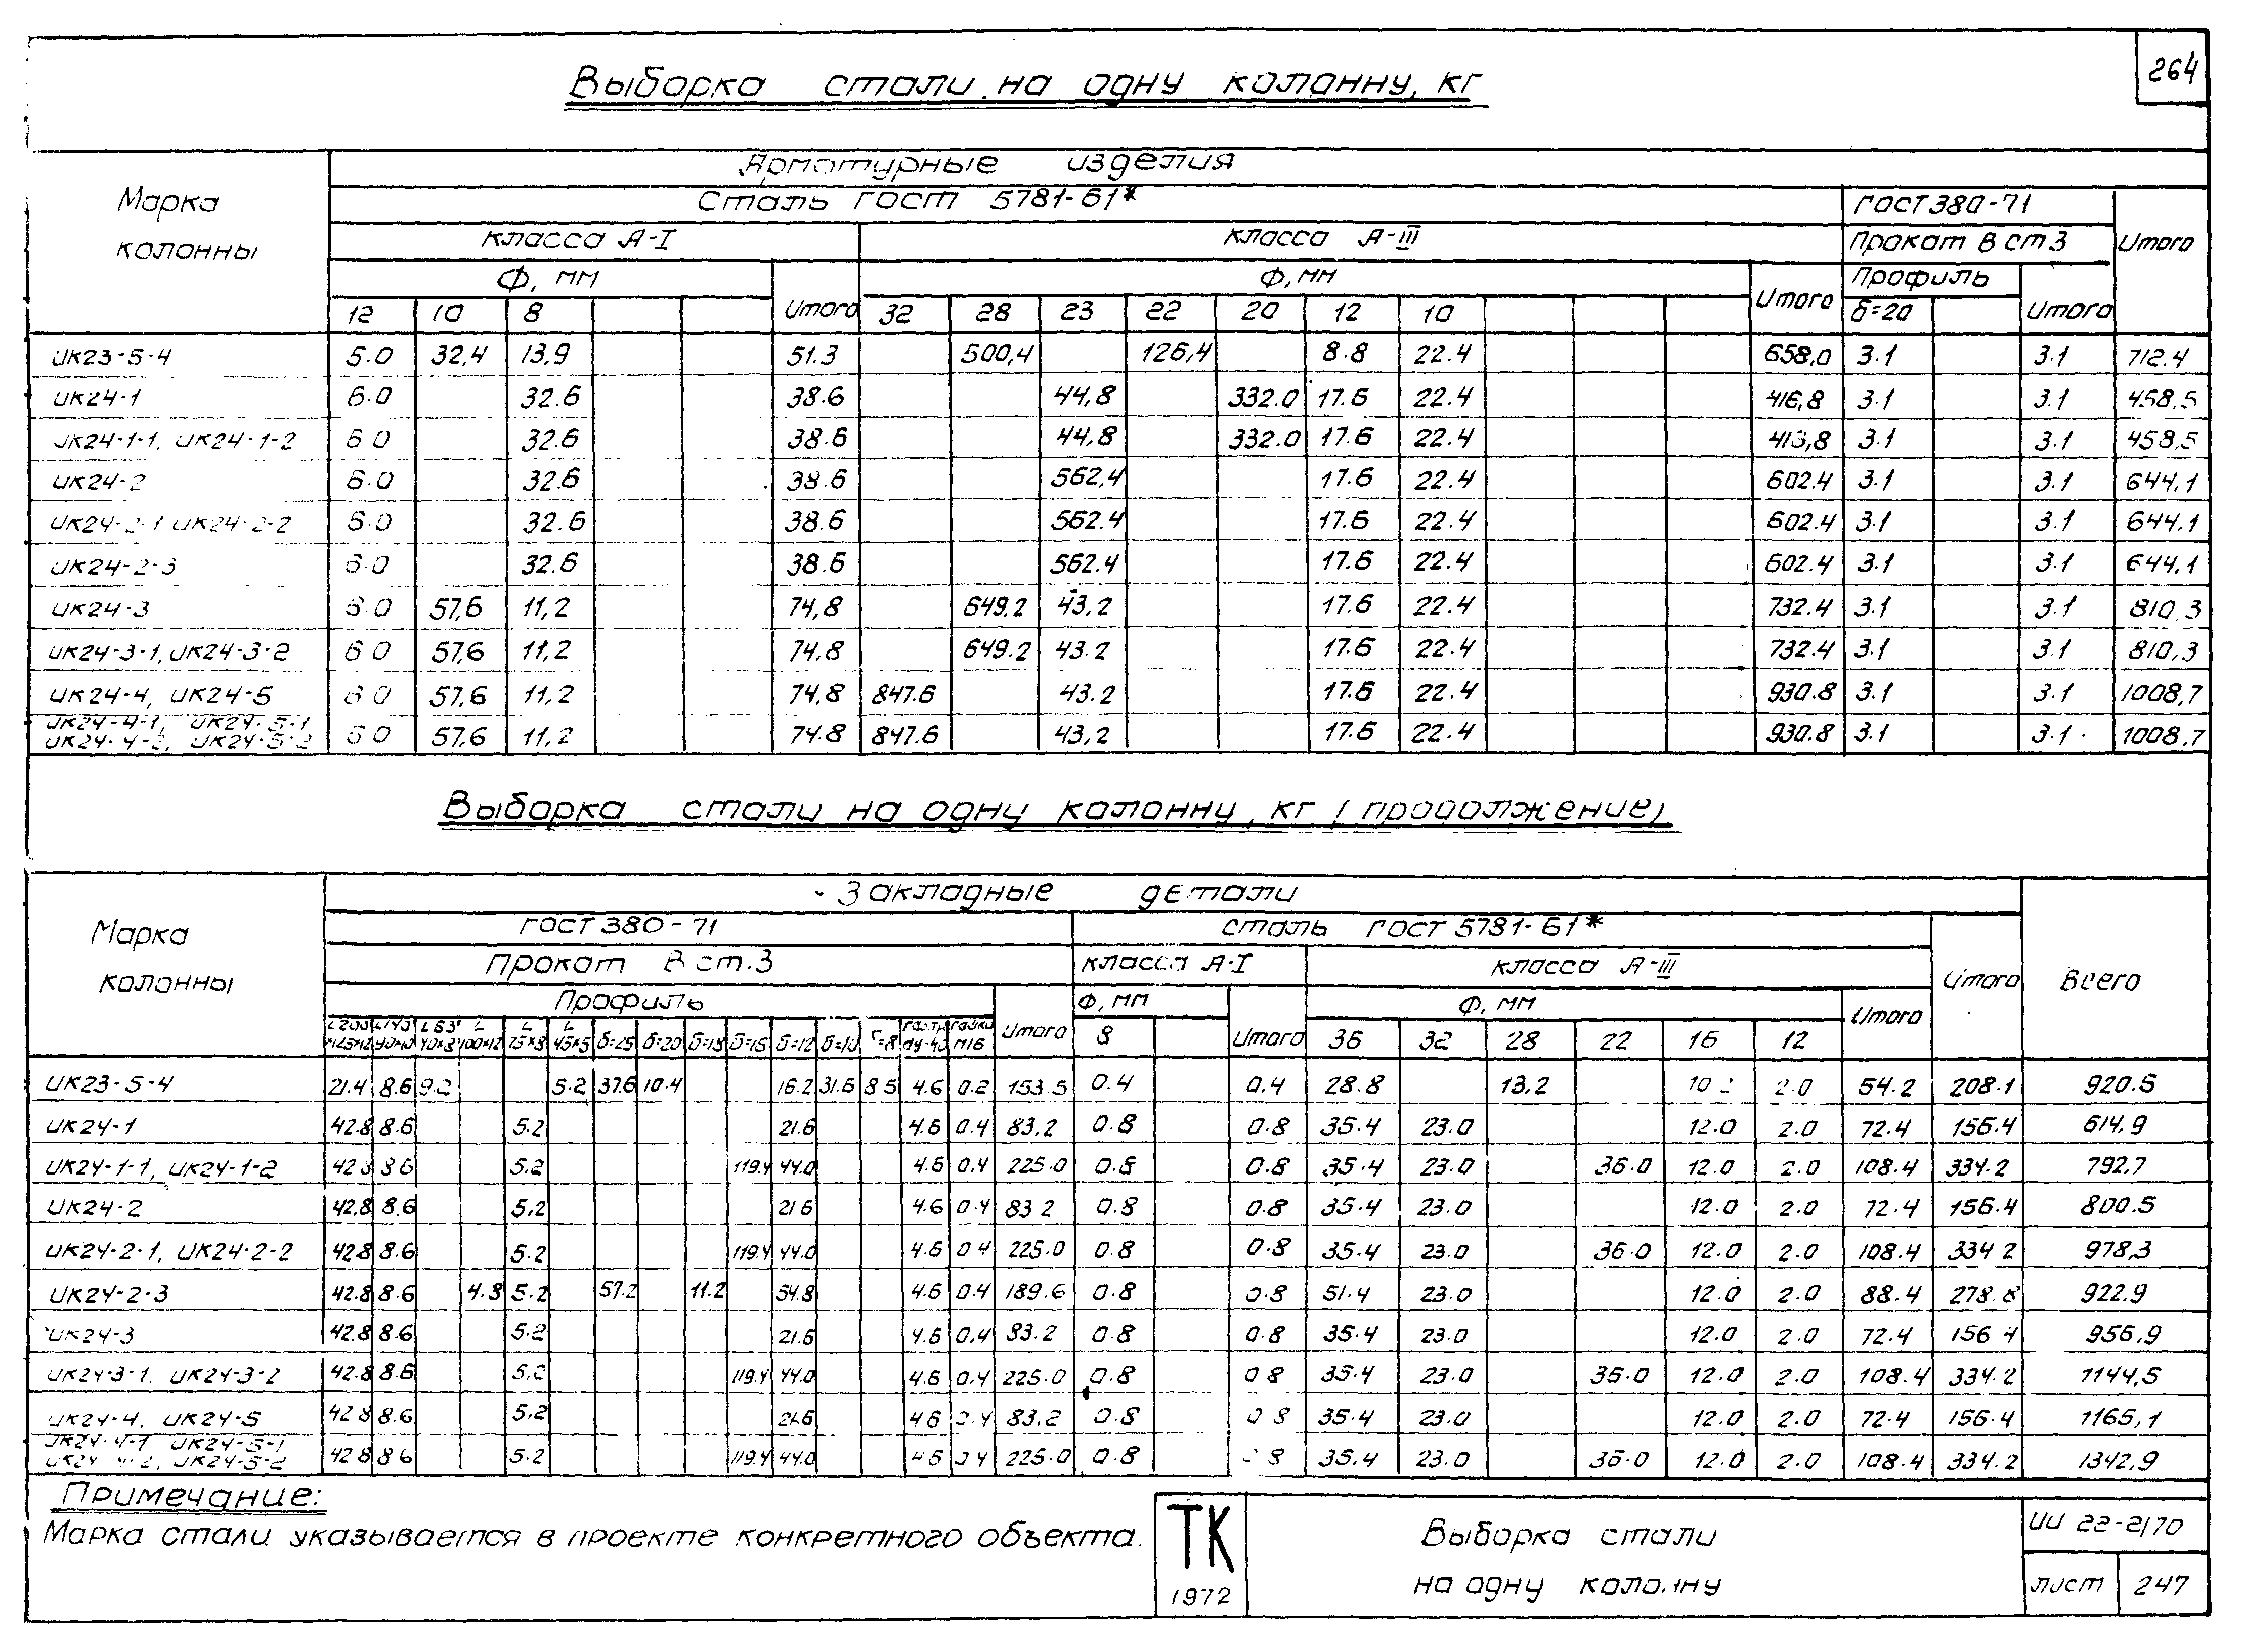 264
Выборка стали на одну колонну, кг
Марка колонны
Арматурные изделия
Сталь ГОСТ 5781-61*
ГОСТ 380-71
Итого
класса А-I
класса А-III
Прокат В ст 3
Ф, мм
Итого
Ф, мм
Итого
Профиль
Итого
12 10 8 32 28 23 22 20 12 10 δ=20
ИК23-5-4 5.0 32,4 13,9 51.3 500,4 126,4 8.8 22.4 658,0 3.1 3.1 712.4
ИК24-1 6.0 32.6 38.6 44,8 332.0 17.6 22.4 416,8 3.1 3.1 458,5
ИК24-1-1, ИК24-1-2 6 0 32.6 38.6 44,8 332.0 17.6 22.4 416,8 3.1 3.1 458,5
ИК24-2 6.0 32.6 38.6 562,4 17.6 22.4 602.4 3.1 3.1 644,1
ИК24-2-1 ИК24-2-2 6.0 32.6 38.6 562.4 17.6 22.4 602.4 3.1 3.1 644.1
ИК24-2-3 6.0 32.6 38.6 562.4 17.6 22.4 602.4 3.1 3.1 644,1
ИК24-3 6.0 57,6 11,2 74,8 649.2 43,2 17.6 22.4 732.4 3.1 3.1 810,3
ИК24-3-1, ИК24-3-2 6 0 57,6 11,2 74,8 649.2 43.2 17.6 22.4 732.4 3.1 3.1 810,3
ИК24-4, ИК24-5 6 0 57,6 11,2 74,8 847.6 43.2 17.6 22.4 930.8 3.1 3.1 1008,7
ИК24-4-1, ИК24-5-1
ИК24-4-2, ИК24-5-2 6 0 57,6 11,2 74.8 847.6 43,2 17.6 22.4 930.8 3.1 3.1 1008.7
Выборка стали на одну колонну, кг (продолжение)
Марка колонны
Закладные детали
Всего
ГОСТ 380-71
сталь ГОСТ 5781-61*
Итого
Прокат В ст.3
класса А-I
класса А-III
Профиль
Итого
Ф, мм
Итого
Ф, мм
Итого
L200×125×12 L140×90×10 L63×40×8 L100×12 L75×8 L45×5 δ=25 δ=20 δ=18 δ=16 δ=12 δ=10 δ=8 Газ.тр. ду-40 Гайка М16 8 36 32 28 22 16 12
ИК23-5-4 21.4 8.6 9.2 5.2 37.6 10.4 16.2 31.6 8 5 4.6 0.2 153.5 0.4 0.4 28.8 13,2 10 2 2.0 54.2 208.1 920.5
ИК24-1 42.8 8.6 5.2 21.6 4.6 0.4 83,2 0.8 0.8 35.4 23.0 12.0 2.0 72.4 156.4 614,9
ИК24-1-1, ИК24-1-2 42 8 8 6 5.2 119.4 44.0 4.6 0.4 225.0 0.8 0.8 35.4 23.0 36.0 12.0 2.0 108.4 334.2 792,7
ИК24-2 42.8 8.6 5.2 21 6 4.6 0.4 83 2 0.8 0.8 35.4 23.0 12.0 2.0 72.4 156.4 800.5
ИК24-2-1, ИК24-2-2 42.8 8.6 5.2 119.4 44.0 4.6 0 4 225.0 0.8 0.8 35.4 23.0 36.0 12.0 2.0 108.4 334 2 978,3
ИК24-2-3 42.8 8.6 4.8 5.2 57.2 11.2 54.8 4.6 0.4 189.6 0.8 0.8 51.4 23.0 12.0 2.0 88.4 278.8 922.9
ИК24-3 42.8 8.6 5.2 21.6 4.6 0,4 83.2 0.8 0.8 35.4 23.0 12.0 2.0 72.4 156 4 956,9
ИК24-3-1, ИК24-3-2 42.8 8.6 5.2 119.4 44.0 4.6 0.4 225.0 0.8 0 8 35.4 23.0 36.0 12.0 2.0 108.4 334.2 1144,5
ИК24-4, ИК24-5 42 8 8.6 5.2 21.6 4 6 0.4 83.2 0.8 0 8 35.4 23.0 12.0 2.0 72.4 156.4 1165,1
ИК24-4-1 ИК24-5-1
ИК24-4-2, ИК24-5-2 42 8 8 6 5.2 119.4 44.0 4 6 0 4 225.0 0.8 0 8 35,4 23.0 36.0 12.0 2.0 108.4 334.2 1342,9
Примечание:
Марка стали указывается в проекте конкретного объекта.
ТК
1972
Выборка стали
на одну колонну
ИИ 22-2/70
лист 247